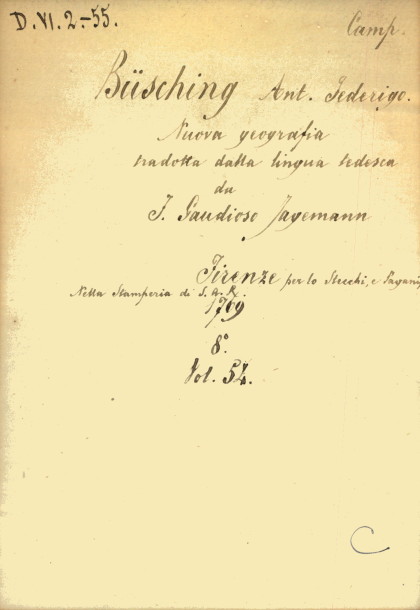 D. VI. 2.-55.
Camp.
Büsching Ant. Federigo.
Nuova geografia
tradotta dalla lingua tedesca
da
I. Gaudioso Jagemann
Firenze per lo Stecchi, e Pagani,
Nella Stamperia di S. A. R.
1769
8°.
Vol. 54.
C